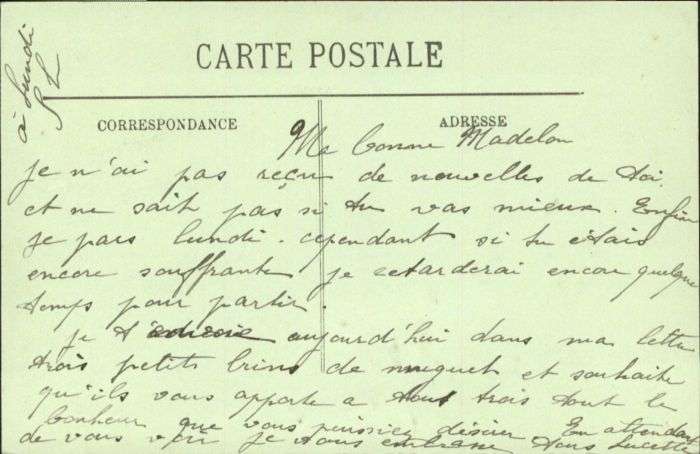 à Lundi
CARTE POSTALE
CORRESPONDANCE
ADRESSE
Ma bonne Madelon
je n'ai pas reçu de nouvelles de toi
et ne sait pas si tu vas mieux. Enfin
je pars lundi. cependant si tu étais
encore souffrante je retarderai encore quelque
temps pour partir.
je t'envoie aujourd'hui dans ma lettre
trois petits brins de muguet et souhaite
qu'ils vous apporte a tous trois tout le
bonheur que vous puissiez désirer En attendant
de vous voir je vous embrasse tous Lucette